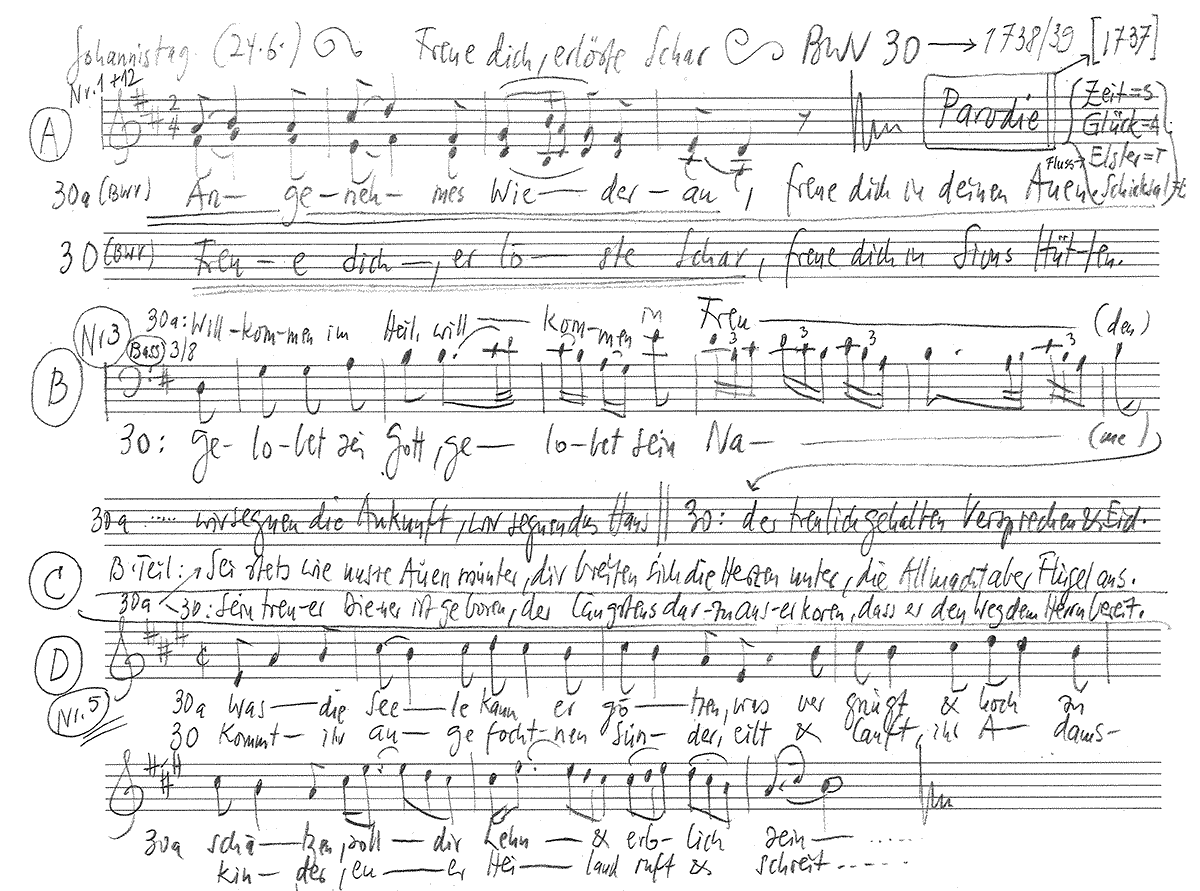 Johannistag (24.6.) Freue dich, erlöste Schar BWV 30 → 1738/39 [1737]
Nr. 1+12
A
2/4
Parodie
Zeit=S
Glück=A
Fluss→ Elster=T
Schicksal=
30a (BWV) An- ge-neh- mes Wie- der- au, freue dich in deinen Auen
30 (BWV) Freu-e dich-, er lö- ste Schar, freue dich in Sions Hüt-ten.
Nr 3
30a: Will-kom-men im Heil, will- kom-men in Freu (den)
Bass 3/8
B
3 3 3 3
30: ge-lo-bet sei Gott, ge- lo-bet sein Na- (me)
30a ..... wir segnen die Ankunft, wir segnen das Haus || 30: der treulich gehalten Versprechen & Eid.
C B-Teil: Sei stets wie unsre Auen munter, dir breiten sich die Herzen unter, die Allmacht aber Flügel aus.
30a 30: Sein treu-er Diener ist geboren, der längstens dar-zu aus-erkoren, dass er den Weg dem Herrn bereit.
D
Nr. 5
30a Was- die See- le kann er gö- tzen, was ver gnügt & hoch zu
30 Kommt- ihr an- ge focht-nen Sün- der, eilt & lauft, ihr A- dams-
30a schä- tzen, soll- dir Lehn- & erb-lich sein- .....
kin- der, eu- er Hei- land ruft & schreit-----